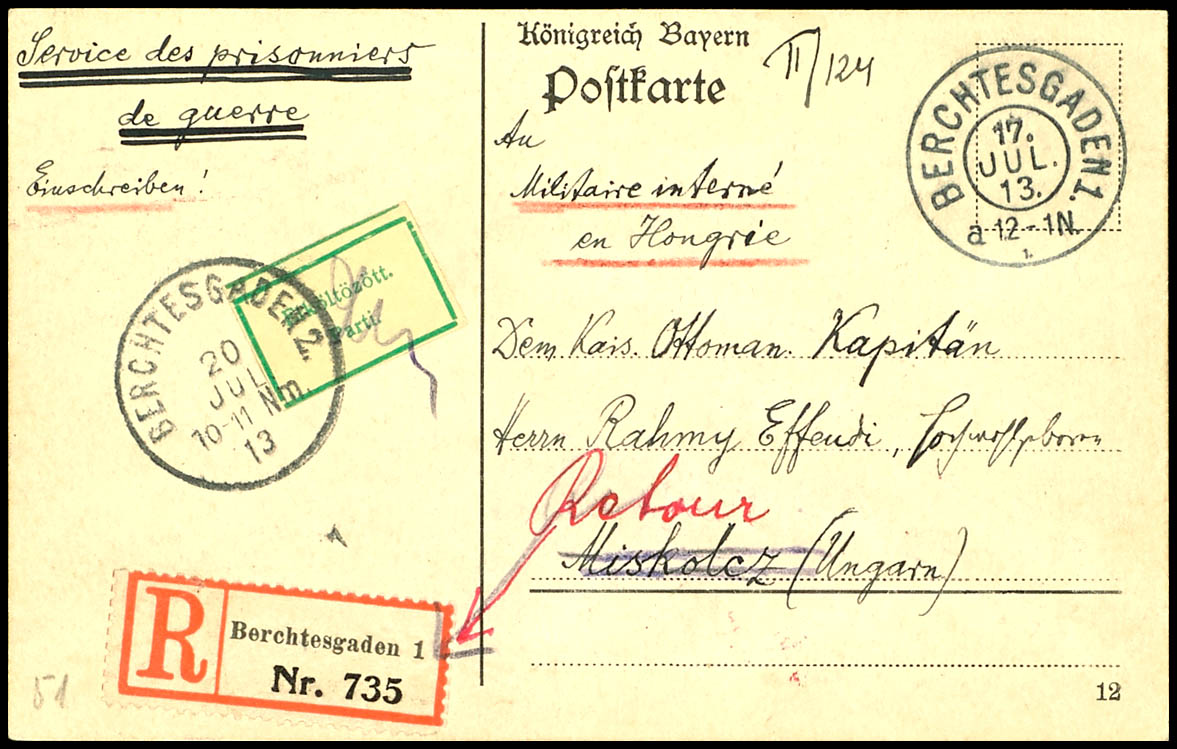 Service des prisonniers
de guerre
Einschreiben!
Königreich Bayern
Postkarte
II/124
An
Militaire interné
en Hongrie
Dem Kais. Ottoman. Kapitän
Herrn Rahmy Effendi, Hochwohlgeboren
Retour
Miskolcz (Ungarn)
BERCHTESGADEN 1.
17.
JUL.
13.
a 12-1N.
BERCHTESGADEN 2.
20
JUL
10-11 Nm.
13
Elköltözött.
Parti.
R
Berchtesgaden 1
Nr. 735
51
12